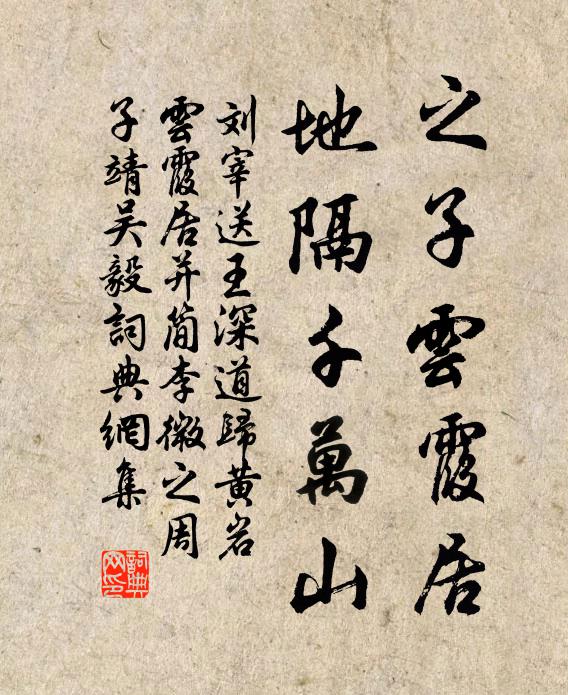 之子雲霞居
地隔千萬山
刘宰送王深道歸黄岩
雲霞居并简李微之周
子靖吴毅詞典網集
詞典
网印